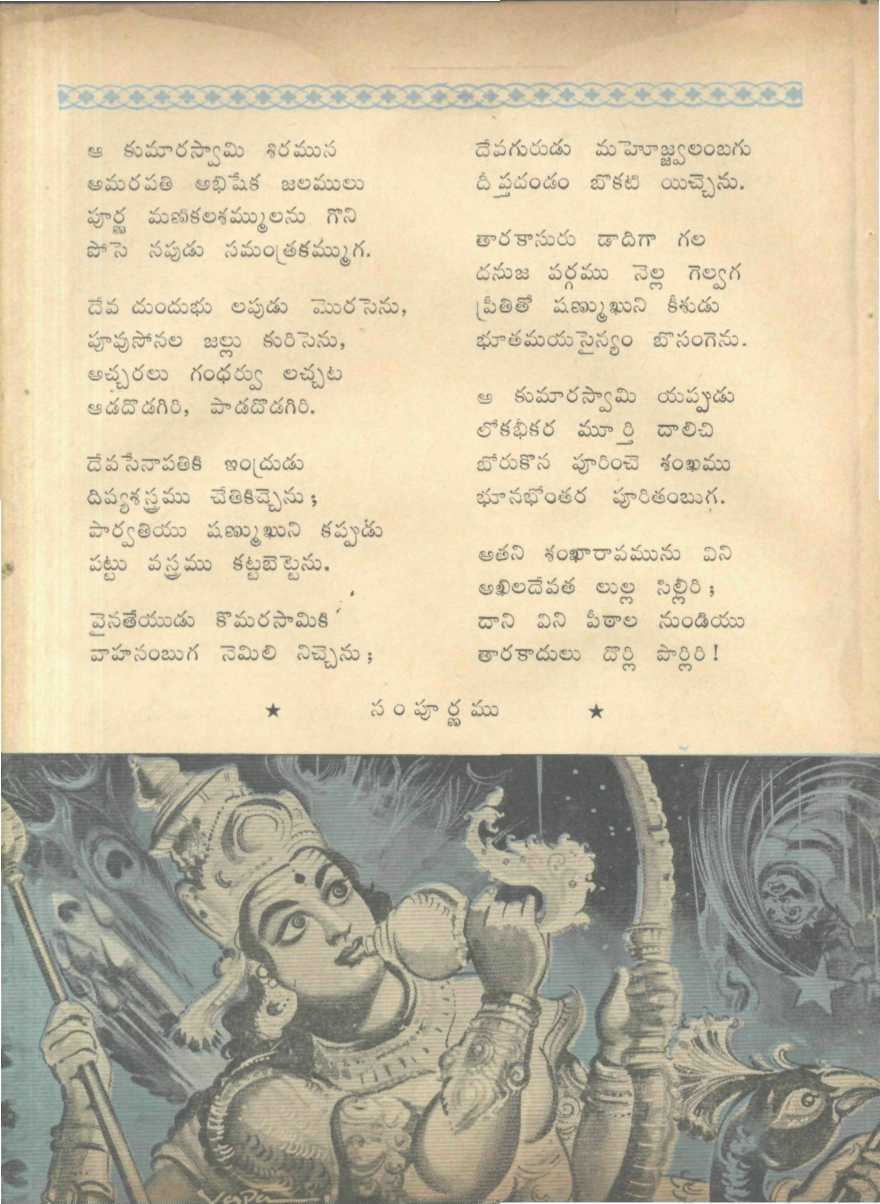 ఆ కుమారస్వామి శిరమున
అమరపతి అభిషేక జలములు
పూర్ణ మణికలశమ్ములను గొని
పోసె నపుడు సమంత్రకమ్ముగ.
దేవ దుందుభు లపుడు మొరసెను,
పూవుసోనల జల్లు కురిసెను,
అచ్చరలు గంధర్వు లచ్చట
ఆడదొడగిరి, పాడదొడగిరి.
దేవసేనాపతికి ఇంద్రుడు
దివ్యశస్త్రము చేతికిచ్చెను;
పార్వతియు షణ్ముఖుని కప్పుడు
పట్టు వస్త్రము కట్టబెట్టెను.
వైనతేయుడు కొమరసామికి
వాహనంబుగ నెమిలి నిచ్చెను;
దేవగురుడు మహోజ్జ్వలంబగు
దీప్తదండం బొకటి యిచ్చెను.
తారకాసురు డాదిగా గల
దనుజ వర్గము నెల్ల గెల్వగ
ప్రీతితో షణ్ముఖుని కీశుడు
భూతమయసైన్యం బొసంగెను.
ఆ కుమారస్వామి యప్పుడు
లోకభీకర మూర్తి దాలిచి
బోరుకొన పూరించె శంఖము
భూనభోంతర పూరితంబుగ.
అతని శంఖారావమును విని
అఖిలదేవత లుల్ల సిల్లిరి;
దాని విని పీఠాల నుండియు
తారకాదులు దొర్లి పొర్లిరి!
★ సంపూర్ణము ★